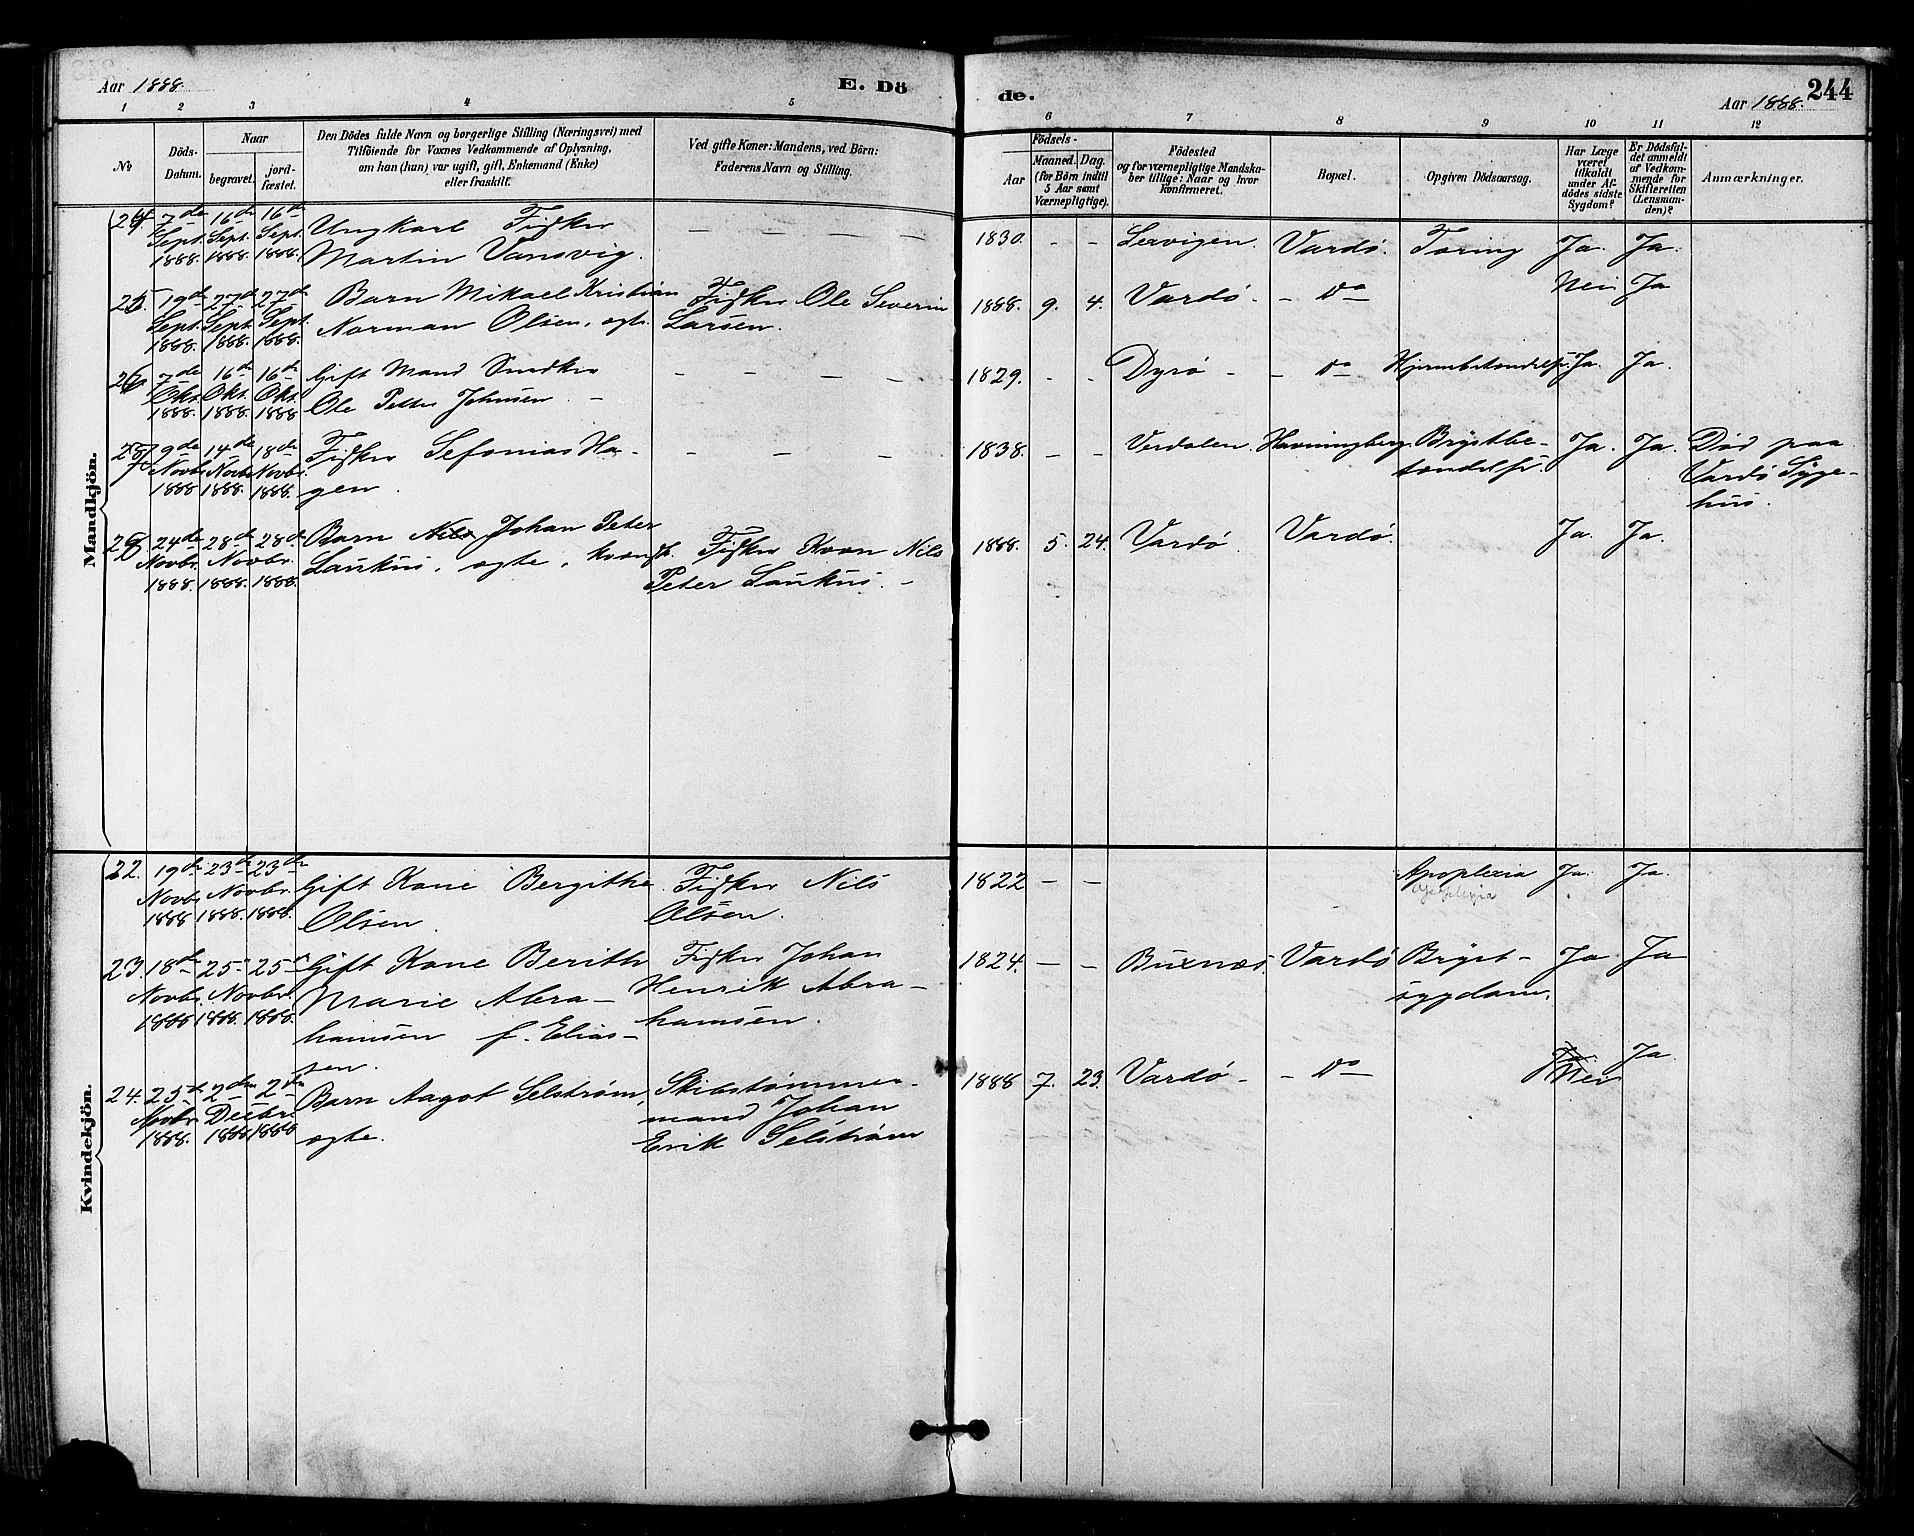 Aar 1888.
E. Dö
de.
Aar 1888.
244
1 2 3 4 5 6 7 8 9 10 11 12
No
Döds-Datum.
Naar
begravet.
jord-fæstet.
Den Dödes fulde Navn og borgerlige Stilling (Næringsvei) med
Tilföiende for Voxnes Vedkommende af Oplysning,
om han (hun) var ugift, gift, Enkemand (Enke)
eller fraskilt.
Ved gifte Koner: Mandens, ved Börn:
Faderens Navn og Stilling.
Födsels-
Aar
Maaned. Dag.
(for Börn indtil
5 Aar samt
Værnepligtige).
Födested
og for værnepligtige Mandska-
ber tillige: Naar og hvor
konfirmeret.
Bopæl.
Opgiven Dödsaarsag.
Har Læge
været
tilkaldt
under Af-
dödes sidste
Sygdom?
Er Dödsfal-
det anmeldt
af Vedkom-
mende for
Skifteretten
(Lensman-
den)?
Anmærkninger.
Mandkjön.
24. 7de Sept. 1888. 16de Sept. 1888. 16de Sept. 1888. Ungkarl Fisker
Martin Vansvig. — — — — — 1830. - - Vardø. Tæring Ja. Ja.
25. 19de Sept. 1888. 27de Sept. 1888. 27de Sept. 1888. Barn Mikael Kristian
Norman Olsen, ægte. Fisker Ole Severin
Larsen. 1888. 9. 4. Vardø - - do Nei Ja
26. 7de Okt. 1888. 16de Okt. 1888. 16de Okt. 1888. Gift Mand Snedker
Ole Petter Johnsen. - — — — — — 1829. - - Dyrø - - do Ja. Ja.
27. 9de Novbr. 1888 14de Novbr. 1888. 18de Novbr. 1888. Fisker Sefonias Ha-
gen. - — — — 1838. — — Verdalen. Havningberg. Brystbe-
tændelse. Ja. Ja. Død paa
Vardø Syge-
hus.
28. 24de Novbr. 1888. 28de Novbr. 1888. 28de Novbr. 1888. Barn Nils Johan Peter
Laukus, ægte, kvænsk. Fisker Kvæn Nils
Peter Laukus. - 1888. 5. 24. Vardø. Vardø. Ja. Ja.
Kvindekjön.
22. 19de Novbr. 1888 23de Novbr. 1888. 23de Novbr. 1888. Gift Kone Bergithe
Olsen. Fisker Nils
Olsen. 1822 — — Apoplexia Ja. Ja.
apoplexia
23. 18de Novbr. 1888 25 Novbr. 1888. 25 Novbr. 1888. Gift Kone Berith
Marie Abra-
hamsen f. Elias-
sen. Fisker Johan
Henrik Abra-
hamsen. 1824. — — Buxnæs. Vardø Bryst-
sygdom. Ja Ja
24. 25de Novbr. 1888. 2den Decbr. 1888 2den Decbr. 1888 Barn Aagot Selstrøm,
ægte. Skibstømmer-
mand Johan
Erik Selstrøm 1888 7. 23. Vardø - - do Nei Ja